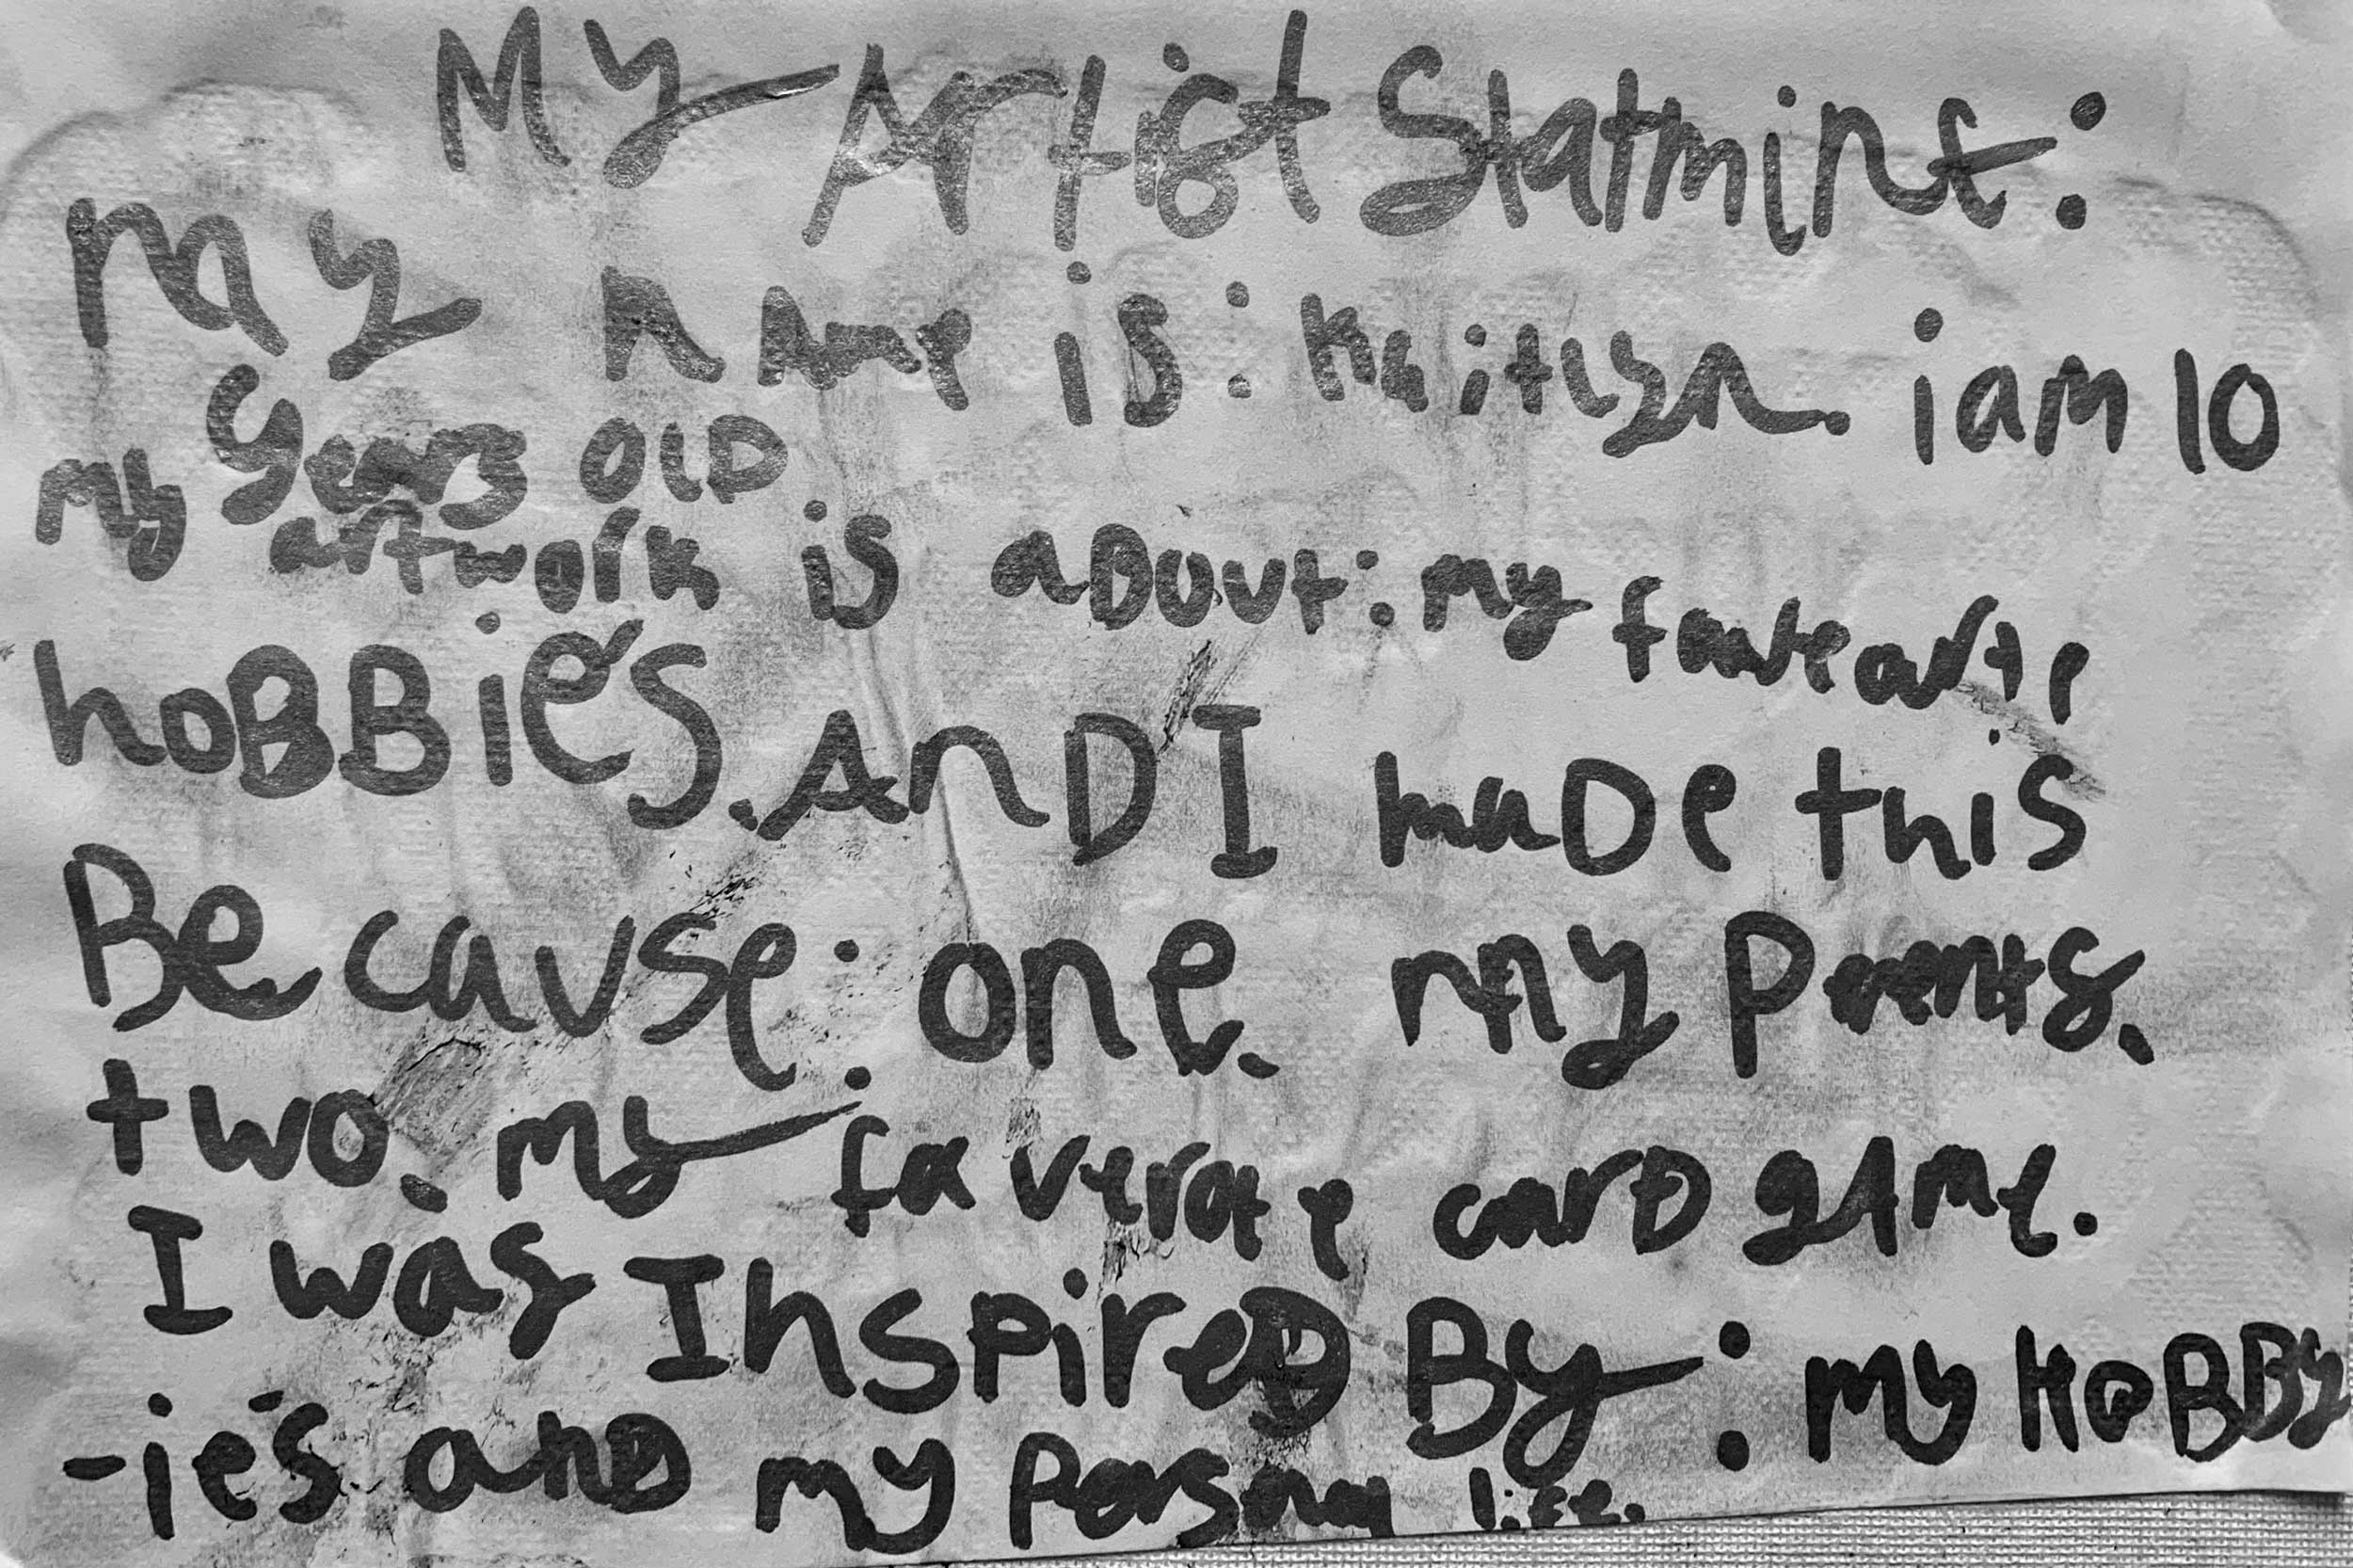 My Artist Statmint:
my nAme is: Kaitlyn. i am 10
years OlD.
my artwork is aBout: my
hoBBie's. AnD I maDe this
Because: one. my Parents.
two. my faverate carD gAme.
I was InspireD By: my HoBBy
-ie's anD my Persony life.